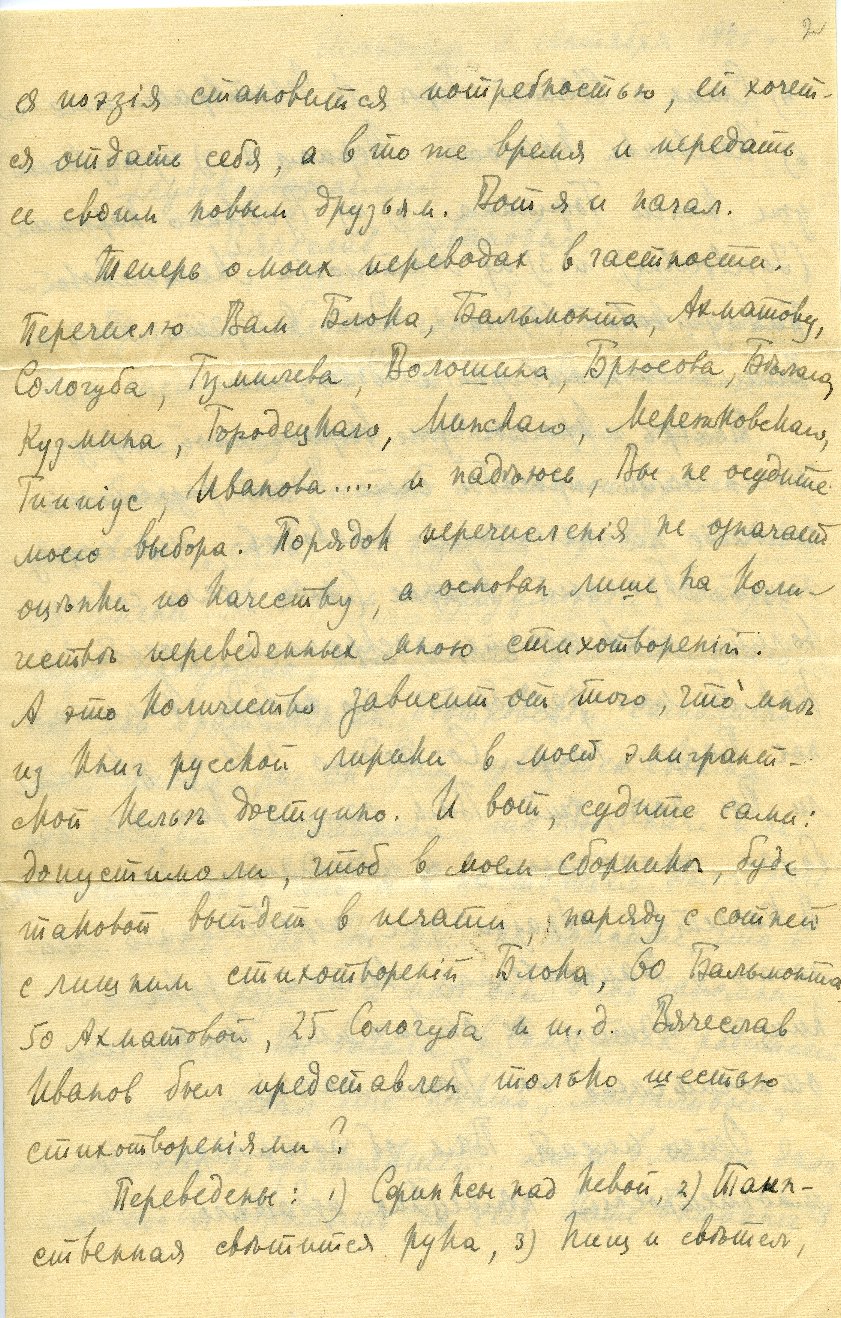 2
ся поэзія становится потребностью, ей хочет-
ся отдать себя, а в то же время и передать
ее своим новым друзьям. Вот я и начал.
Теперь о моих переводах в частности.
Перечислю Вам Блока, Бальмонта, Ахматову,
Сологуба, Гумилева, Волошина, Брюсова, Бѣлаго,
Кузмина, Городецкаго, Минскаго, Мережковскаго,
Гиппіус, Иванова.... и надѣюсь, Вы не осудите
моего выбора. Порядок перечисленія не означает
оцѣнки по качеству, а основан лишь на коли-
чествѣ переведенных мною стихотвореній.
А это количество зависит от того, что мнѣ
из книг русской лирики в моей эмигрант-
ской кельѣ доступно. И вот, судите сами:
допустимо ли, чтоб в моем сборникѣ, буде
таковой выйдет в печати, наряду с сотней
с лишним стихотвореній Блока, 60 Бальмонта
50 Ахматовой, 25 Сологуба и т.д. Вячеслав
Иванов был представлен только шестью
стихотвореніями?
Переведены: 1) Сфинксы над Невой, 2) Таин-
ственная свѣтится рука, 3) Нищ и свѣтел,